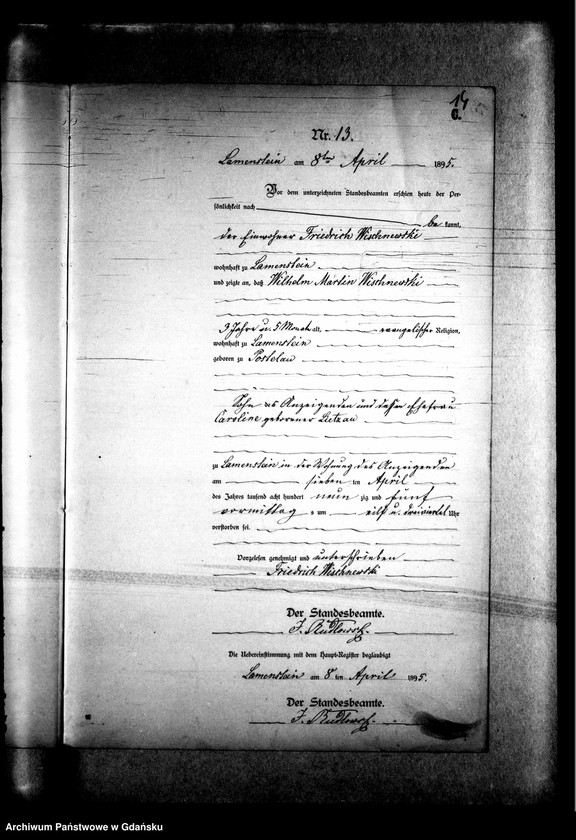 14
C.
Nr. 13.
Lamenstein am 8ten April 1895.
Vor dem unterzeichneten Standesbeamten erschien heute der Per-
sönlichkeit nach
be kannt,
der Einwohner Friedrich Wischnewski
wohnhaft zu Lamenstein
und zeigte an, daß Wilhelm Martin Wischnewski
3 Jahre u. 5 Monat alt, evangelischer Religion,
wohnhaft zu Lamenstein
geboren zu Postelau
Sohn des Anzeigenden und dessen Ehefrau
Caroline geborener Lietzau
zu Lamenstein in der Wohnung des Anzeigenden
am sieben ten April
des Jahres tausend acht hundert neun zig und fünf
vormittag s um eilf u. dreiviertel Uhr
verstorben sei.
Vorgelesen, genehmigt und unterschrieben
Friedrich Wischnewski
Der Standesbeamte.
Die Uebereinstimmung mit dem Haupt-Register beglaubigt
Lamenstein am 8 ten April 1895.
Der Standesbeamte.
Archiwum Państwowe w Gdańsku